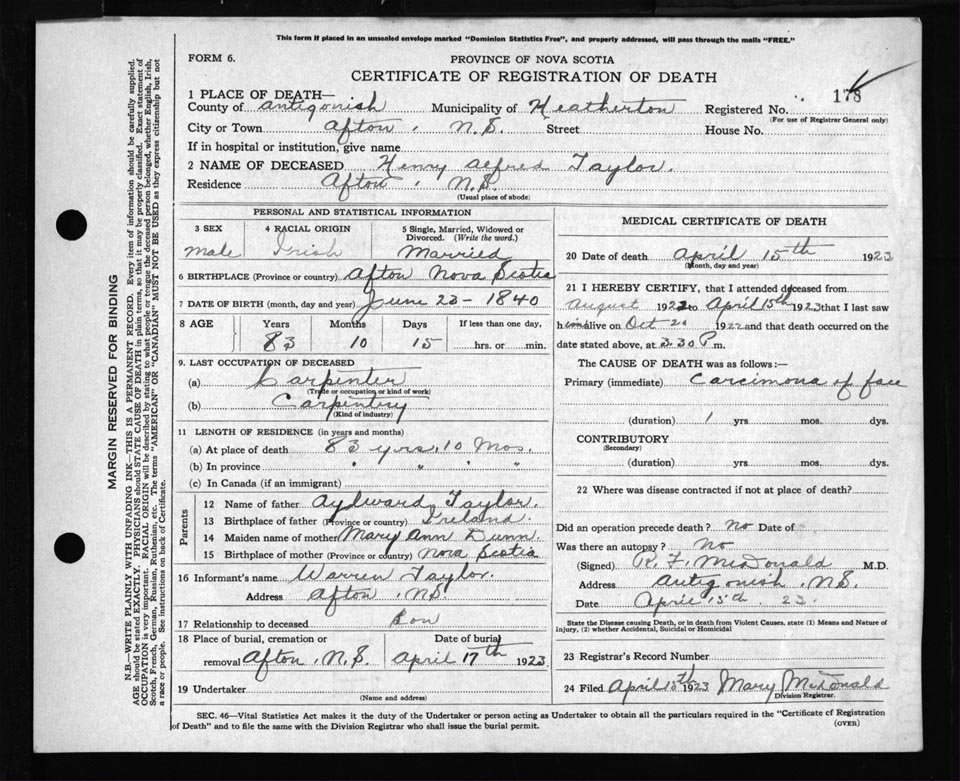 This form if placed in an unsealed envelope marked "Dominion Statistics Free", and properly addressed, will pass through the mails "FREE."
FORM 6.
PROVINCE OF NOVA SCOTIA
CERTIFICATE OF REGISTRATION OF DEATH
1 PLACE OF DEATH—
County of Antigonish Municipality of Heatherton Registered No. 178
(For use of Registrar General only)
City or Town Afton, N.S. Street House No.
If in hospital or institution, give name
2 NAME OF DECEASED Henry Alfred Taylor.
Residence Afton, N.S.
(Usual place of abode)
PERSONAL AND STATISTICAL INFORMATION
3 SEX 4 RACIAL ORIGIN 5 Single, Married, Widowed or Divorced. (Write the word.)
male Irish Married
6 BIRTHPLACE (Province or country) Afton Nova Scotia
7 DATE OF BIRTH (month, day and year) June 23 - 1840
8 AGE Years Months Days If less than one day,
83 10 15 hrs. or min.
9. LAST OCCUPATION OF DECEASED
(a) Carpenter
(Trade or occupation or kind of work)
(b) Carpentry
(Kind of industry)
11 LENGTH OF RESIDENCE (in years and months)
(a) At place of death 83 yrs, 10 Mos.
(b) In province " " " "
(c) In Canada (if an immigrant)
Parents
12 Name of father Aylward Taylor.
13 Birthplace of father (Province or country) Ireland.
14 Maiden name of mother Mary Ann Dunn.
15 Birthplace of mother (Province or country) Nova Scotia
16 Informant's name Warren Taylor.
Address Afton, N.S
17 Relationship to deceased Son
18 Place of burial, cremation or removal Afton, N.S. Date of burial April 17th 1923
19 Undertaker
(Name and address)
MEDICAL CERTIFICATE OF DEATH
20 Date of death April 15th 1923
(Month, day and year)
21 I HEREBY CERTIFY, that I attended deceased from
August 1922 to April 15th 1923 that I last saw
him alive on Oct 20 1922 and that death occurred on the
date stated above, at 3.30 P. m.
The CAUSE OF DEATH was as follows:—
Primary (immediate) Carcimona of face
(duration) 1 yrs. mos. dys.
CONTRIBUTORY
(Secondary)
(duration) yrs. mos. dys.
22 Where was disease contracted if not at place of death?
Did an operation precede death? No Date of
Was there an autopsy? No
(Signed) R. F. McDonald M.D.
Address Antigonish, N.S.
Date April 15th. 23.
State the Disease causing Death, or in death from Violent Causes, state (1) Means and Nature of
Injury, (2) whether Accidental, Suicidal or Homicidal
23 Registrar's Record Number
24 Filed April 15th 1923 Mary McDonald
Division Registrar.
SEC. 46—Vital Statistics Act makes it the duty of the Undertaker or person acting as Undertaker to obtain all the particulars required in the "Certificate of Registration
of Death" and to file the same with the Division Registrar who shall issue the burial permit. (OVER)
MARGIN RESERVED FOR BINDING
N.B.—WRITE PLAINLY WITH UNFADING INK—THIS IS A PERMANENT RECORD. Every item of information should be carefully supplied.
AGE should be stated EXACTLY. PHYSICIANS should STATE CAUSE OF DEATH in plain terms, so that it may be properly classified. Exact statement of
OCCUPATION is very important. RACIAL ORIGIN will be described by stating to what people or tongue the deceased person belonged, whether English, Irish,
Scotch, French, German, Russian, Ruthenian, etc. The terms "AMERICAN" OR "CANADIAN" MUST NOT BE USED as they express citizenship but not
a race or people. See instructions on back of Certificate.